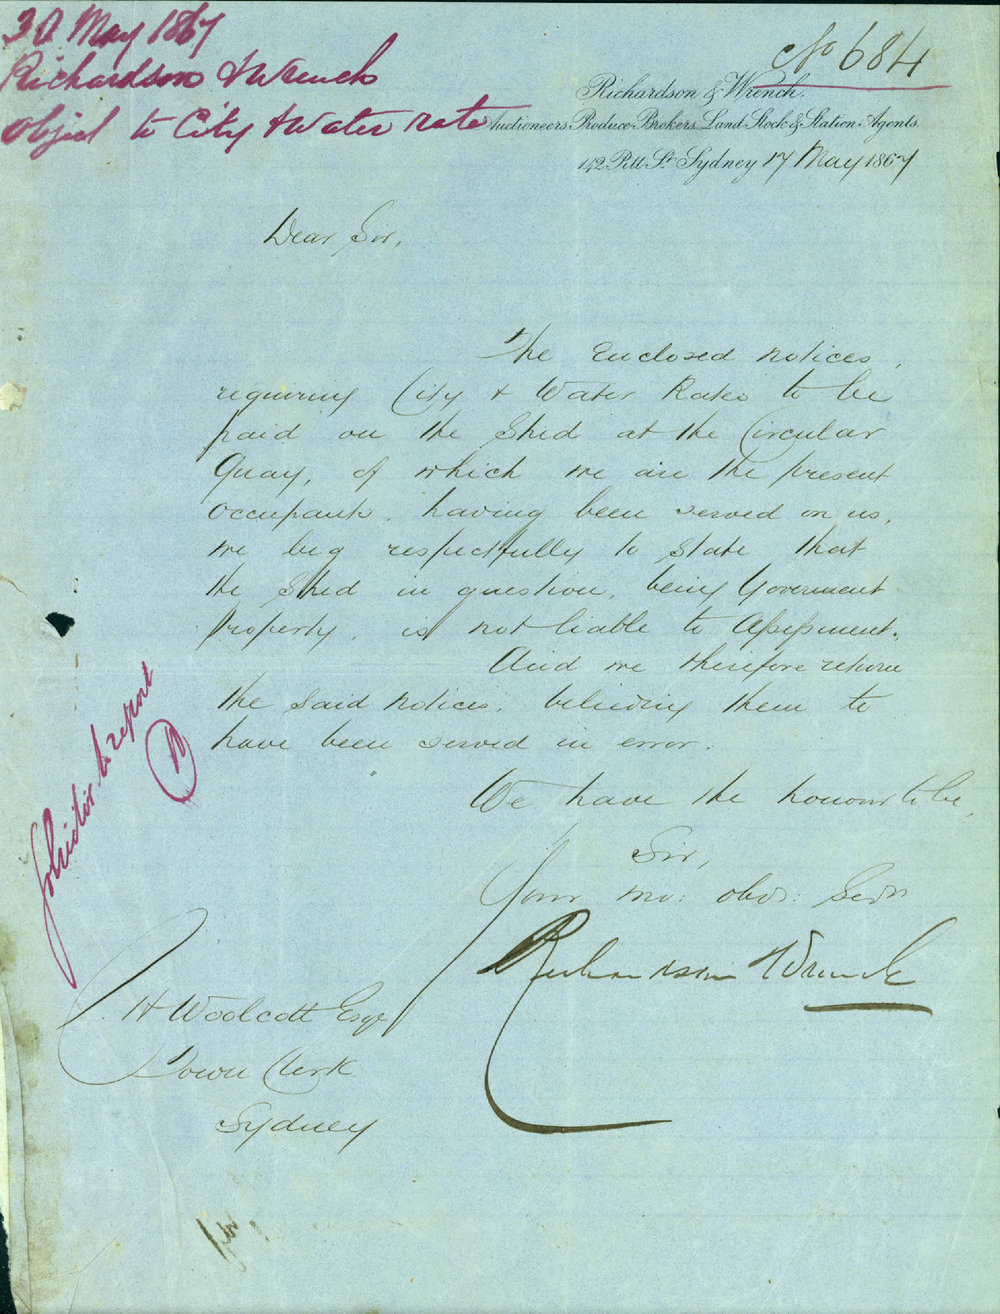 30 May 1867
Richardson & Wrench
Object to City & Water rate
No 684
Richardson & Wrench,
Auctioneers Produce Brokers Land Stock & Station Agents
142 Pitt St Sydney 17 May 1867
Dear Sir,
The enclosed notices,
requiring City & Water Rates to be
paid on the Shed at the Circular
Quay, of which we are the present
occupants, having been served on us,
we beg respectfully to state that
the Shed in question, being Government
Property, is not liable to Assessment.
And we therefore return
the said notices, believing them to
have been served in error.
We have the honour to be,
Sir,
Your mo: obdt: Servt
Richardson & Wrench
C. H Woolcott Esqr
Town Clerk
Sydney
Solicitor to report